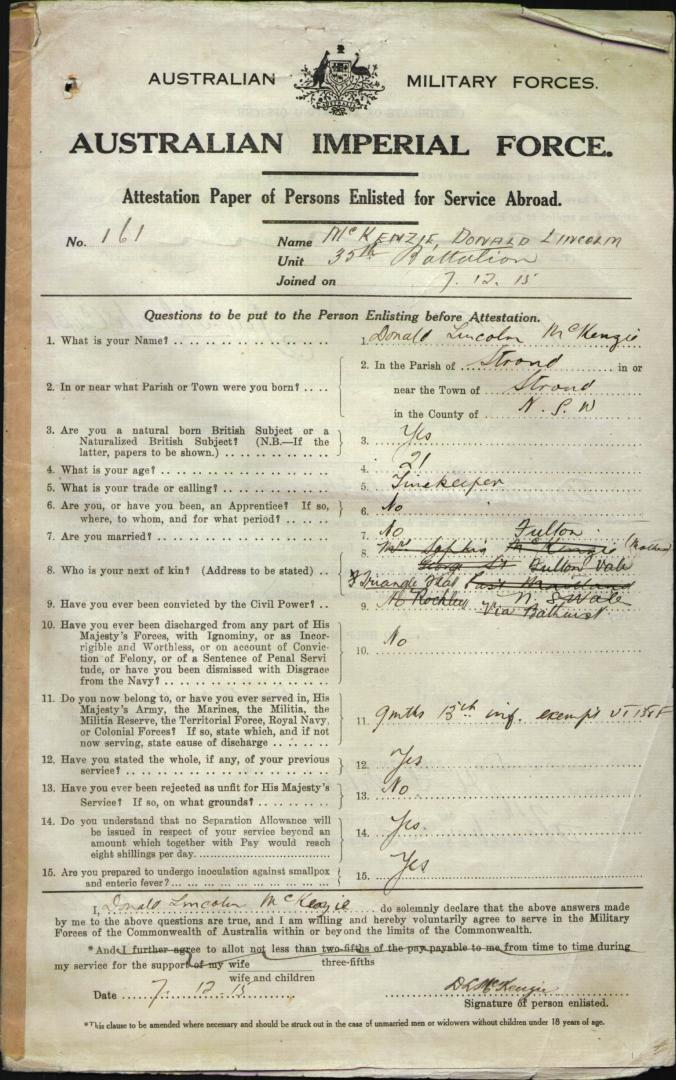 AUSTRALIAN MILITARY FORCES.
AUSTRALIAN IMPERIAL FORCE.
Attestation Paper of Persons Enlisted for Service Abroad.
No. 161
Name McKENZIE, DONALD LINCOLN
Unit 35th Battalion
Joined on 7.12.15
Questions to be put to the Person Enlisting before Attestation.
1. What is your Name? 1. Donald Lincoln McKenzie
2. In or near what Parish or Town were you born? 2. In the Parish of Stroud in or
near the Town of Stroud
in the County of N.S.W
3. Are you a natural born British Subject or a
Naturalized British Subject? (N.B.—If the
latter, papers to be shown.) 3. Yes
4. What is your age? 4. 21
5. What is your trade or calling? 5. Timekeeper
6. Are you, or have you been, an Apprentice? If so,
where, to whom, and for what period? 6. No
7. Are you married? 7. No
Fulton
8. Who is your next of kin? (Address to be stated) 8. Mrs Sophia McKenzie (Mother)
George St Fulton Vale
Triangle Flat East Maitland
Rockley N. S Wales
Via Bathurst
9. Have you ever been convicted by the Civil Power? 9. No
10. Have you ever been discharged from any part of His
Majesty's Forces, with Ignominy, or as Incor-
rigible and Worthless, or on account of Convic-
tion of Felony, or of a Sentence of Penal Servi
tude, or have you been dismissed with Disgrace
from the Navy? 10. No
11. Do you now belong to, or have you ever served in, His
Majesty's Army, the Marines, the Militia, the
Militia Reserve, the Territorial Force, Royal Navy,
or Colonial Forces? If so, state which, and if not
now serving, state cause of discharge 11. 9mths 15th inf. exempt
12. Have you stated the whole, if any, of your previous
service? 12. Yes
13. Have you ever been rejected as unfit for His Majesty's
Service? If so, on what grounds? 13. No
14. Do you understand that no Separation Allowance will
be issued in respect of your service beyond an
amount which together with Pay would reach
eight shillings per day. 14. Yes
15. Are you prepared to undergo inoculation against smallpox
and enteric fever? 15. Yes
I, Donald Lincoln McKenzie do solemnly declare that the above answers made
by me to the above questions are true, and I am willing and hereby voluntarily agree to serve in the Military
Forces of the Commonwealth of Australia within or beyond the limits of the Commonwealth.
*And I further agree to allot not less than two-fifths of the pay payable to me from time to time during
three-fifths
my service for the support of my wife
wife and children
Date 7.12.15
D L McKenzie
Signature of person enlisted.
*This clause to be amended where necessary and should be struck out in the case of unmarried men or widowers without children under 18 years of age.